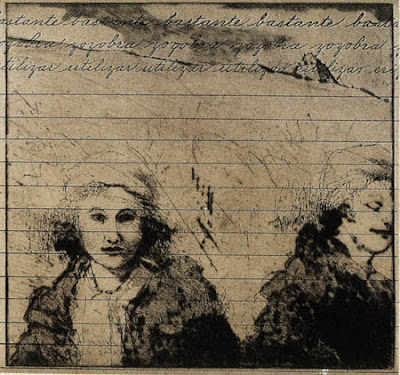 astante bastante bastante bastante basta
ozobra zozobra zozobra zozobra zozobra
tilizar utilizar utilizar utilizar utilizar